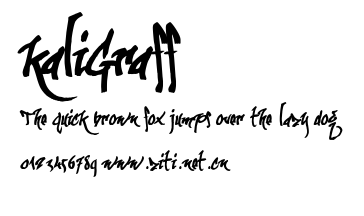 KaliGraff
The quick brown fox jumps over the lazy dog
0123456789 www.ziti.net.cn